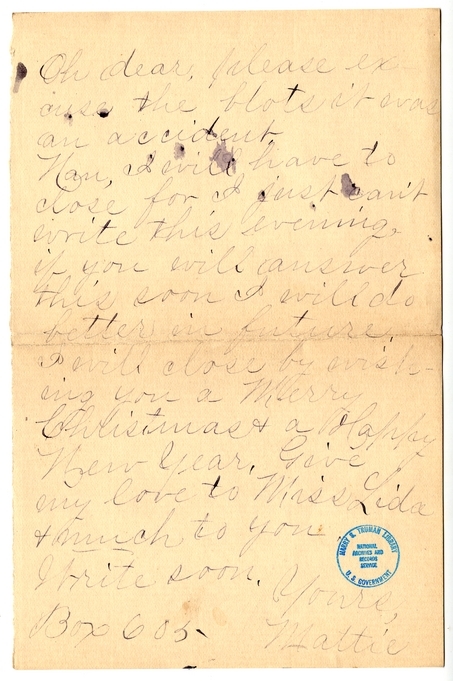 Oh dear, please ex-
cuse the blots it was
an accident
Nan, I will have to
close for I just can't
write this evening.
if you will answer
this soon I will do
better in future.
I will close by wish-
ing you a Merry
Christmas & a Happy
New Year. Give
my love to Miss Lida
& much to you
Write soon.
Yours,
Box 605
Mattie
HARRY S. TRUMAN LIBRARY
NATIONAL
ARCHIVES AND
RECORDS
SERVICE
U.S. GOVERNMENT